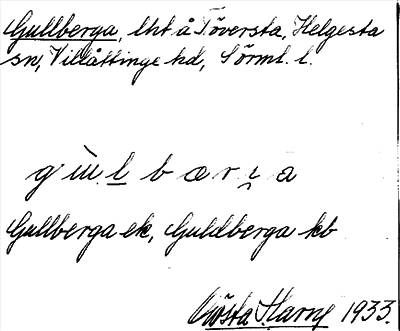 Gullberga, lht å Töversta, Helgesta
sn, Villåttinge hd, Sörml. l.
g ù l b æ r i̯ a
Gullberga ek, Guldberga kb
Gösta Harry 1933.